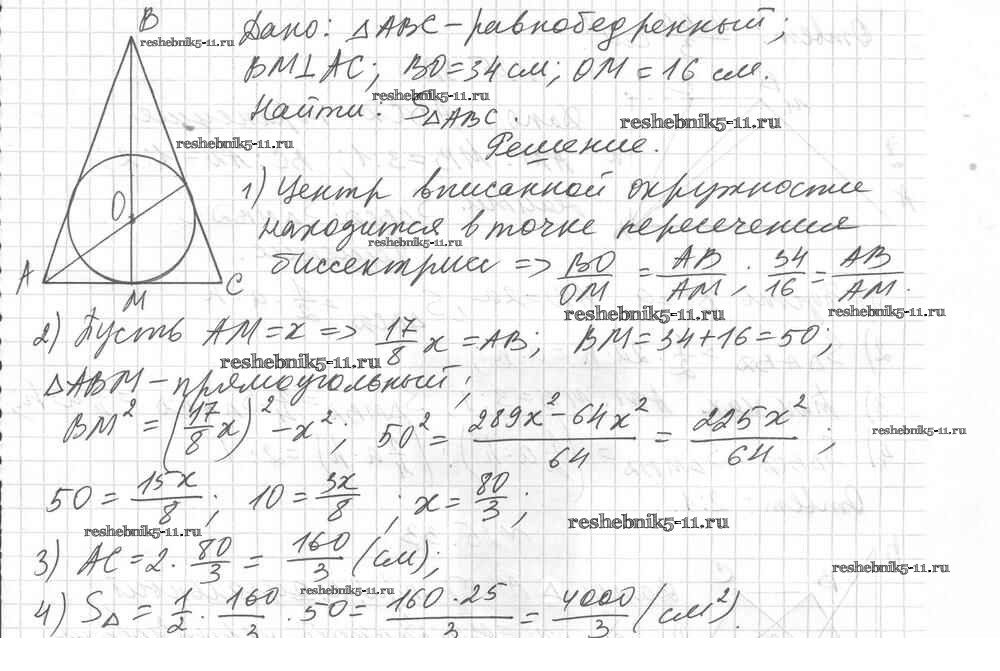 B
reshebnik5-11.ru
Дано: △ABC – равнобедренный;
BM⊥AC; BO=34 см; OM=16 см.
reshebnik5-11.ru
Найти: S△ABC.
reshebnik5-11.ru
reshebnik5-11.ru
Решение.
1) Центр вписанной окружности
O
находится в точке пересечения
reshebnik5-11.ru
биссектрис => BO/OM = AB/AM; 34/16 = AB/AM.
A
M
C
reshebnik5-11.ru
2) Пусть AM=x => 17/8 x = AB; BM=34+16=50;
reshebnik5-11.ru
reshebnik5-11.ru
△ABM – прямоугольный;
BM² = (17/8 x)² – x²; 50² = 289x² – 64x²/64 = 225x²/64;
reshebnik5-11.ru
50 = 15x/8; 10 = 3x/8; x = 80/3;
reshebnik5-11.ru
reshebnik5-11.ru
3) AC = 2 · 80/3 = 160/3 (см);
reshebnik5-11.ru
reshebnik5-11.ru
4) S△ = 1/2 · 160/3 · 50 = 160·25/3 = 4000/3 (см²).